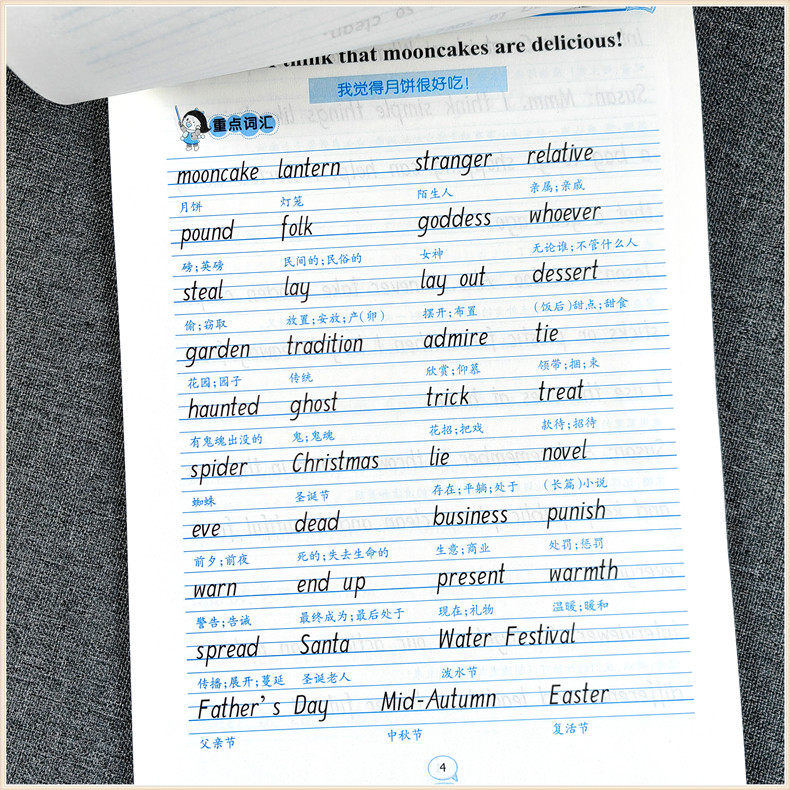 think that mooncakes are delicious!
我觉得月饼很好吃！
重点词汇
mooncake lantern stranger relative
月饼 灯笼 陌生人 亲属;亲戚
pound folk goddess whoever
磅;英磅 民间的;民俗的 女神 无论谁;不管什么人
steal lay lay out dessert
偷;窃取 放置;安放;产(卵) 摆开;布置 (饭后)甜点;甜食
garden tradition admire tie
花园;园子 传统 欣赏;仰慕 领带;捆;束
haunted ghost trick treat
有鬼魂出没的 鬼;鬼魂 花招;把戏 款待;招待
spider Christmas lie novel
蜘蛛 圣诞节 存在;平躺;处于 (长篇)小说
eve dead business punish
前夕;前夜 死的;失去生命的 生意;商业 处罚;惩罚
warn end up present warmth
警告;告诫 最终成为;最后处于 现在;礼物 温暖;暖和
spread Santa Water Festival
传播;展开;蔓延 圣诞老人 泼水节
Father's Day Mid-Autumn Easter
父亲节 中秋节 复活节
4